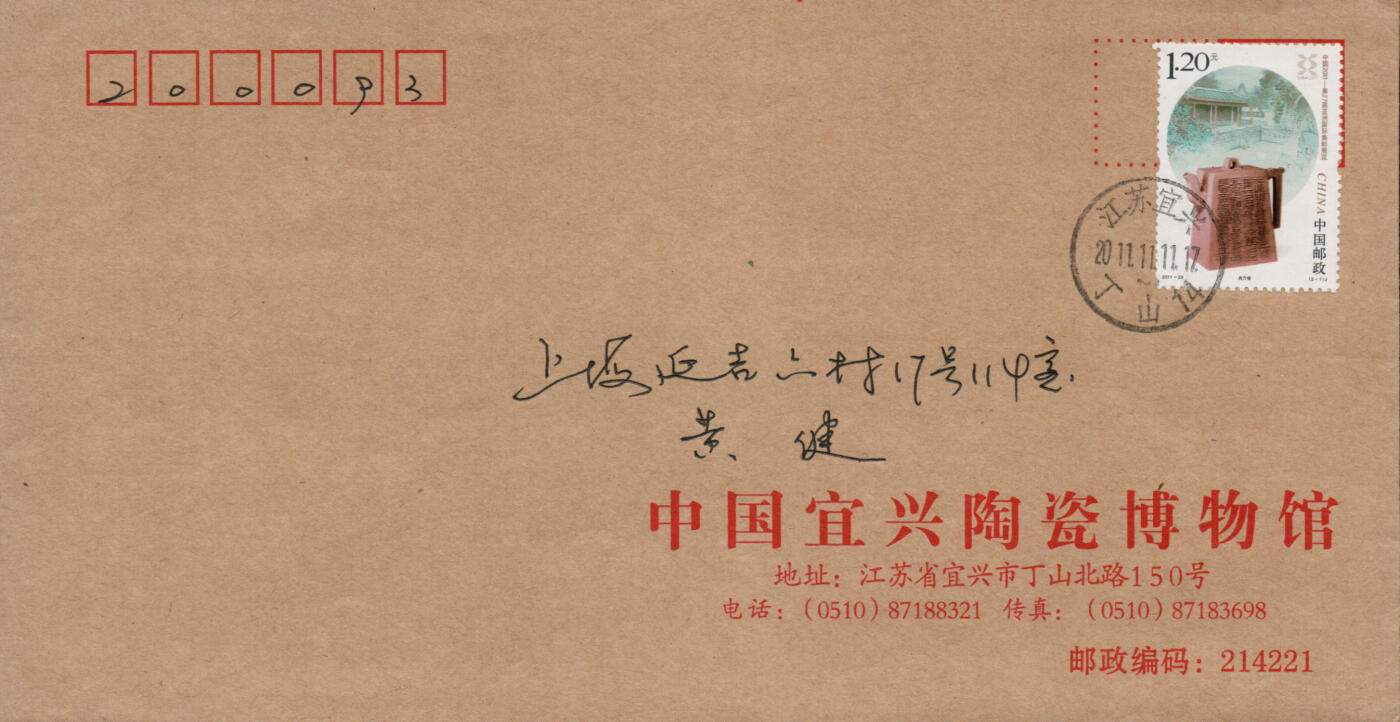 200093
1.20元
中国2011—第27届亚洲国际集邮展览
CHINA
中国邮政
2011-29
(2-1)J
江苏宜兴
2011.11.11.17
丁山14
上海延吉六村17号114室
黄健
中国宜兴陶瓷博物馆
地址：江苏省宜兴市丁山北路150号
电话：（0510）87188321 传真：（0510）87183698
邮政编码：214221